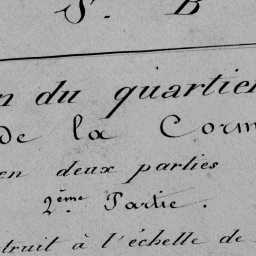 S. B
n du quartie
de la Corm
en deux parties
2ème Partie.
truit à l'échelle de